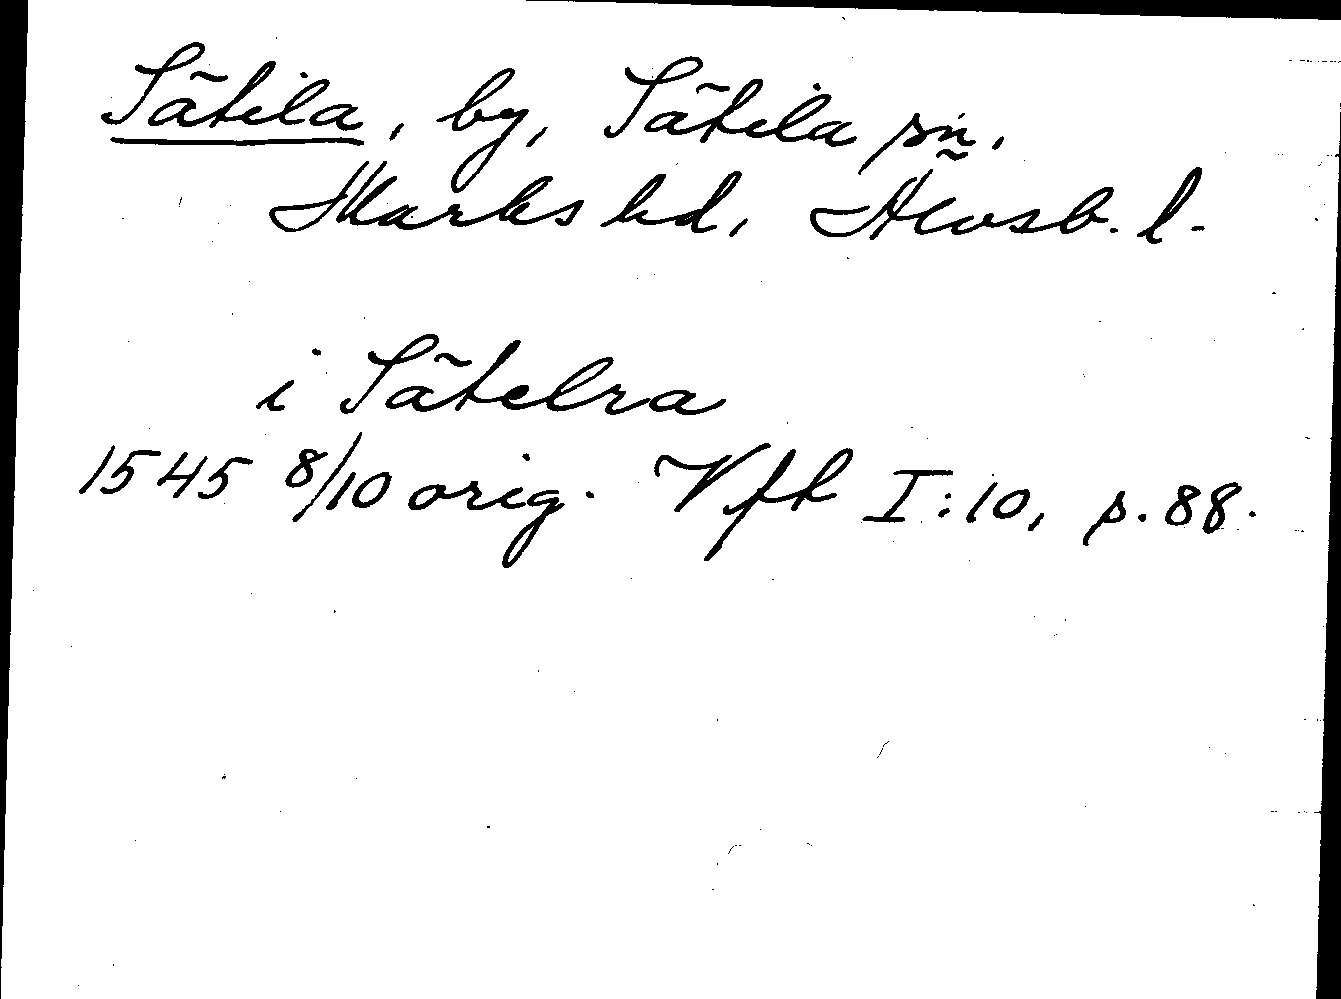 Sätila, by, Sätila sn.
Marks hd, Älvsb. l.
i Sätelra
1545 8/10 orig. Vfh I:10, s. 88.